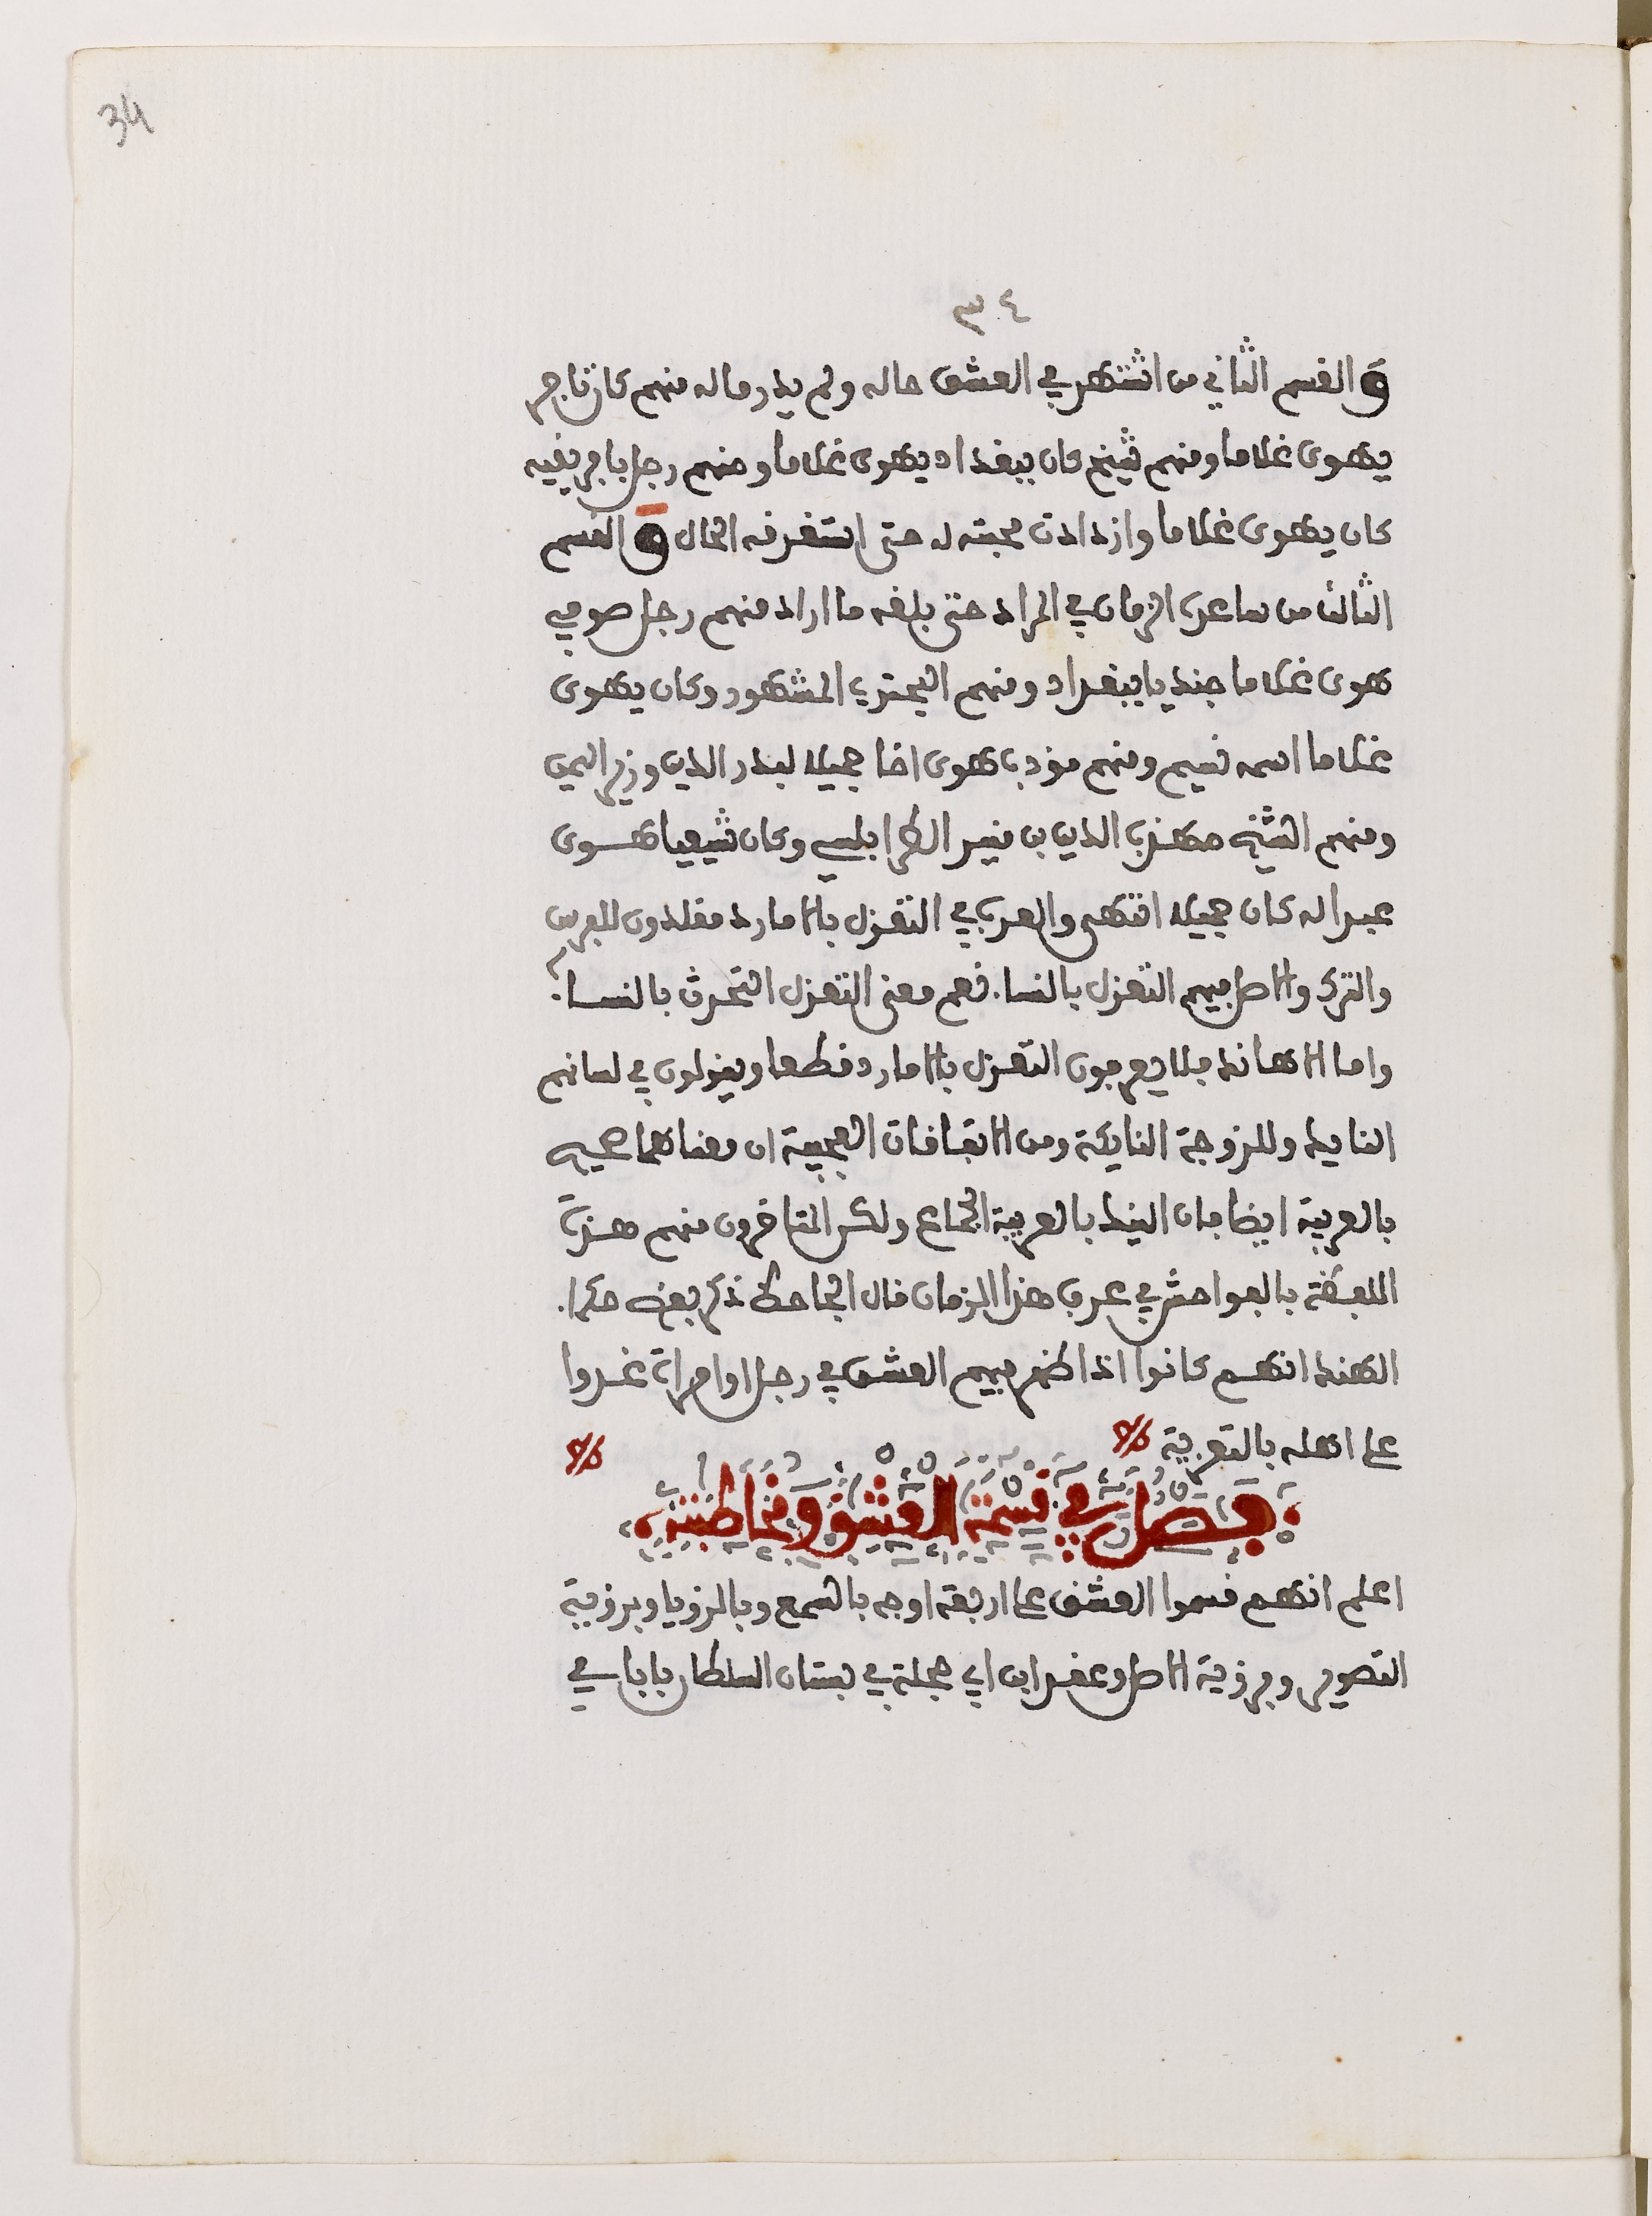 34
٣٤
و القسم الثاني من اشتهر في العشق حاله ولم يدر ماله منهم كان تاجر
يهوى غلاما ومنهم شيخ كان ببغداد يهوى غلاما ومنهم رجل بافريقيه
كان يهوى غلاما وازدادت محبته له حتى استغرقه الحال و القسم
الثالث من ساعده الزمان في المراد حتى بلغه ما اراد منهم رجل صوفي
هوى غلاما جنديا ببغداد ومنهم البحتري المشهور وكان يهوى
غلاما اسمه نسيم ومنهم مؤدب هوى اخا جميلا لبدر الدين وزير اليمن
ومنهم الشيخ مهذب الدين بن منير الطرابلسي وكان شيعيا هوى
عبدا له كان جميلا انتهى والعرب في التغزل بالامارد مقلدون للفرس
والترك والاصل فيهم التغزل بالنسا. نعم معنى التغزل التحدث بالنسا.
واما الاهاند فلا يعرفون التغزل بالامارد قطعا ويقولون في لسانهم
النايك وللزوجة النايكة ومن الاتفاقات العجيبة ان معناهما صحيح
بالعربية ايضا فان النيك بالعربية الجماع ولكن المتاخرون منهم هذبت
اللفظة بالفواحش في عرف هذا الزمان قال الجاحظ ذكر بعض حكما.
الهند انهم كانوا اذا ظهر فيهم العشق في رجل او امراة غدوا
على اهله بالتعزية
فصل في قسمة العشق ومخاطبته
اعلم انهم قسموا العشق على اربعة اوجه بالسمع وبالرؤيا وبرؤية
التصوير وبرؤية الاصل وعقد ابن ابي حجلة في بستان السلطان بابا في